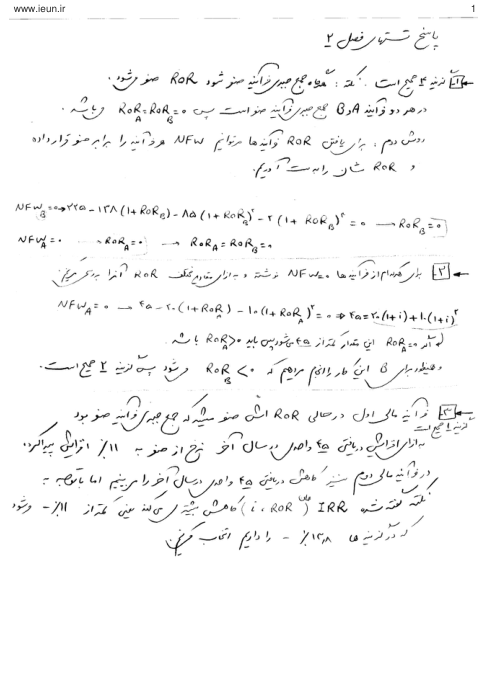 www.ieun.ir
1
پاسخ تستهای فصل ۲
۱ گزینه ۴ صحیح است. نکته: هرگاه جمع جبری فرآیند صفر شود ROR صفر میشود.
در هر دو فرآیند A و B جمع جبری فرآیند صفر است پس ROR_A = ROR_B = 0 میباشد.
روش دوم: برای یافتن ROR فرآیندها میتوانیم NFW هر فرآیند را برابر صفر قرار داده
و ROR شان را بدست آوریم.
NFW_B = 0 → ۲۲۵ - ۱۳۸ (1 + ROR_B) - ۸۵ (1 + ROR_B)^۲ - ۲ (1 + ROR_B)^۳ = 0 → ROR_B = 0
NFW_A = 0 → ROR_A = 0 → ROR_A = ROR_B = 0
۲ برای هرکدام از فرآیندها NFW=0 نوشته و به ازای مقادیر مختلف ROR آنرا
NFW_A = 0 → ۴۵ - ۲۰ (1 + ROR_A) - ۱۰ (1 + ROR_A)^۲ = 0 ⇒ ۴۵ = ۲۰ (1+i) + ۱۰ (1+i)^۲
اگر ROR_A = 0 این مقدار کمتر از ۴۵ میشود پس باید ROR_A > 0 باشد.
و همینطور برای B این کار را انجام میدهیم که ROR_B < 0 میشود پس گزینه ۲ صحیح است.
۳ فرآیند مالی اول در حالی ROR اش صفر میشد که جمع جبری فرآیند صفر بود
گزینه ۱ صحیح است
به ازای افزایش دریافتی ۴۵ واحدی در سال آخر نرخ از صفر به ۱۱٪ افزایش پیدا کرد.
در فرآیند مالی دوم نیز کاهش دریافتی ۴۵ واحدی در سال آخر را می‌بینیم اما با توجه به
نکته گفته شده IRR (همان i، ROR) کاهش بیشتری می‌کند یعنی کمتر از ۱۱٪- میشود
که در گزینه ها ۱۳٫۸٪ - را داریم انتخاب میکنیم.